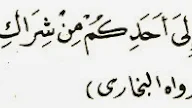 إِلَىٰ أَحَدِكُمْ مِنْ شِرَاكِ
رواه البخاري)